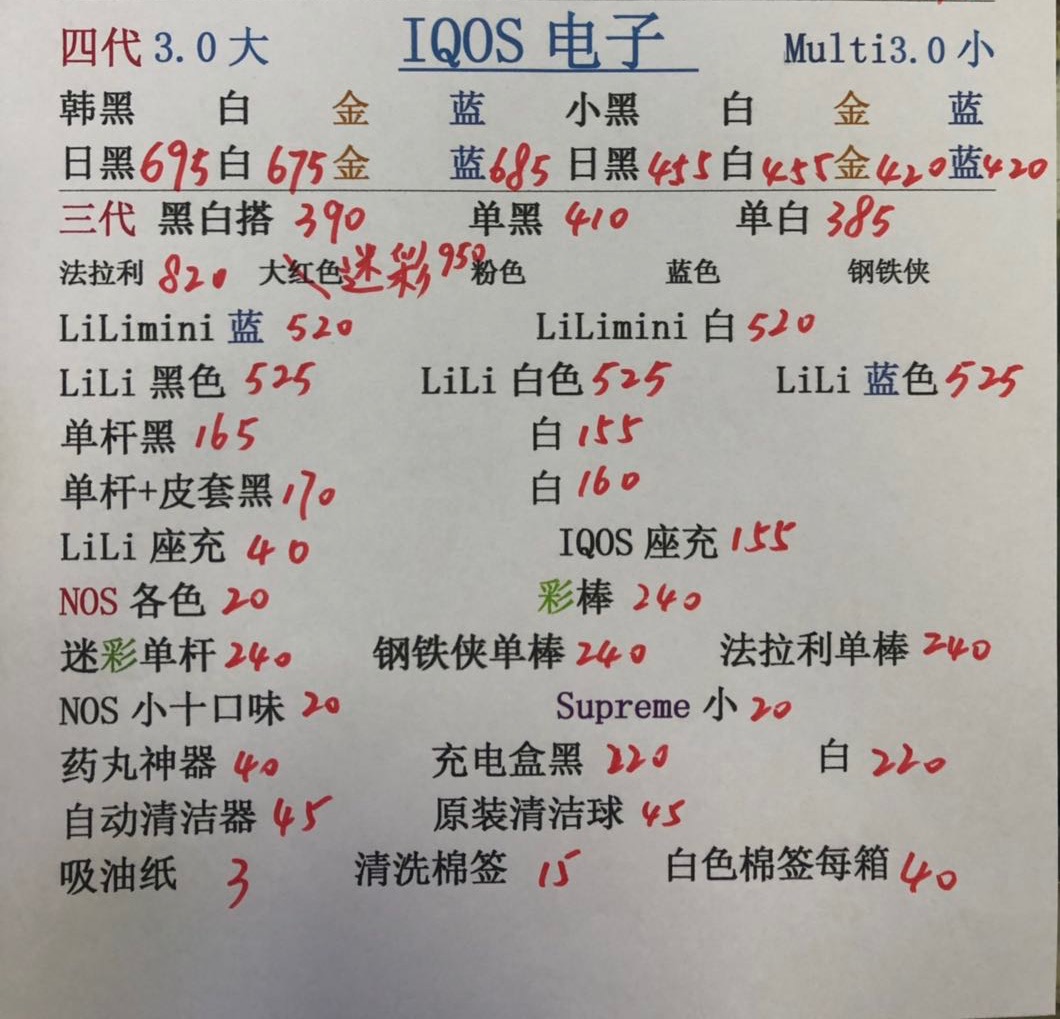 四代3.0大 IQOS电子 Multi3.0小
韩黑 白 金 蓝 小黑 白 金 蓝
日黑695 白675 金 蓝685 日黑455 白455 金420 蓝420
三代 黑白搭 390 单黑 410 单白 385
法拉利 820 大红色 迷彩950 粉色 蓝色 钢铁侠
LiLimini 蓝 520 LiLimini 白 520
LiLi 黑色 525 LiLi 白色 525 LiLi 蓝色 525
单杆黑 165 白 155
单杆+皮套黑 170 白 160
LiLi 座充 40 IQOS 座充 155
NOS 各色 20 彩棒 240
迷彩单杆 240 钢铁侠单棒 240 法拉利单棒 240
NOS 小十口味 20 Supreme 小 20
药丸神器 40 充电盒黑 220 白 220
自动清洁器 45 原装清洁球 45
吸油纸 3 清洗棉签 15 白色棉签每箱 40